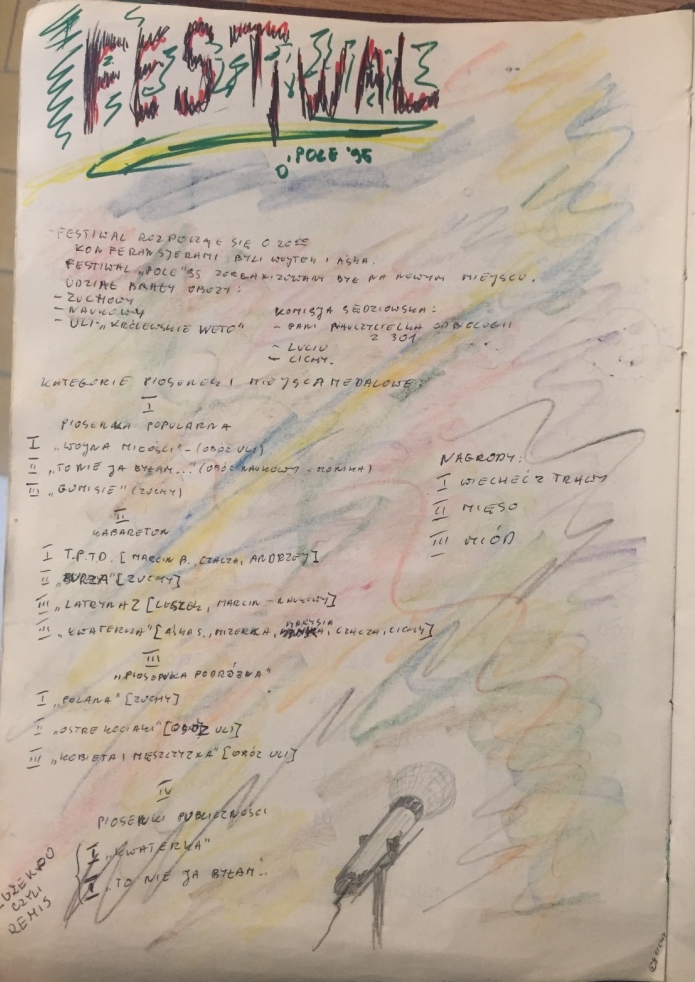 FESTIWAL
O'POLE '95
FESTIWAL ROZPOCZĄŁ SIĘ O 20
KONFERANSJERAMI BYLI WOJTEK I AŚKA.
FESTIWAL „POLE" 95 ZORGANIZOWANY BYŁ NA NOWYM MIEJSCU.
UDZIAŁ BRAŁY OBOZY:
- ZUCHOWY
- NAUKOWY
- ULI-„KRÓLEWSKIE WETO"
KOMISJA SĘDZIOWSKA:
- PANI NAUCZYCIELKA OD BIOLOGII
Z 301
- LUCIU
- CICHY.
KATEGORIE PIOSENEK I MIEJSCA MEDALOWE:
I
PIOSENKA POPULARNA
I „WOJNA MIŁOŚCI" - (OBÓZ ULI)
II „TO NIE JA BYŁAM..." (OBÓZ NAUKOWY - MONIKA)
III „GUMISIE" (ZUCHY)
NAGRODY:
I WIECHEĆ Z TRAWY
II MIĘSO
III MIÓD
II
KABARETON
I T.P.T.D. [MARCIN A., CZACZA, ANDRZEJ]
II „BURZA" [ZUCHY]
III „LATRYNA 2 [LESZEK, MARCIN - NAUKOWY]
III „KWATERKA" [AŚKA S., MIZERKA, MARYSIA, CZACZA, CICHY]
III
„PIOSENKA PODRÓŻNA"
I „POLANA" [ZUCHY]
II „OSTRE KOCIAKI" [OBÓZ ULI]
III „KOBIETA I MĘSZCZYZNA" [OBÓZ ULI]
IV
PIOSENKI PUBLICZNOŚCI
I „KWATERKA"
I „TO NIE JA BYŁAM..
CZYLI
REMIS